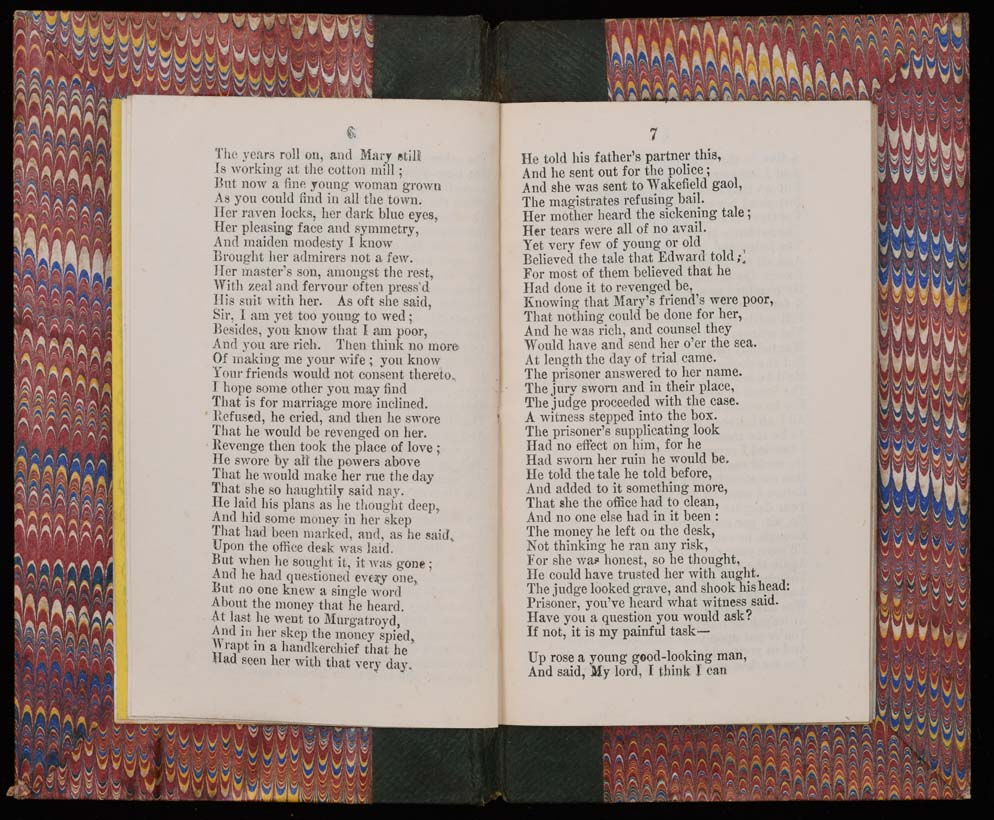 6
The years roll on, and Mary still
Is working at the cotton mill ;
But now a fine young woman grown
As you could find in all the town.
Her raven locks, her dark blue eyes,
Her pleasing face and symmetry,
And maiden modesty I know
Brought her admirers not a few.
Her master's son, amongst the rest,
With zeal and fervour often press'd
His suit with her. As oft she said,
Sir, I am yet too young to wed ;
Besides, you know that I am poor,
And you are rich. Then think no more
Of making me your wife ; you know
Your friends would not consent thereto.
I hope some other you may find
That is for marriage more inclined.
Refused, he cried, and then he swore
That he would be revenged on her.
Revenge then took the place of love ;
He swore by all the powers above
That he would make her rue the day
That she so haughtily said nay.
He laid his plans as he thought deep,
And hid some money in her skep
That had been marked, and, as he said,
Upon the office desk was laid.
But when he sought it, it was gone ;
And he had questioned every one,
But no one knew a single word
About the money that he heard.
At last he went to Murgatroyd,
And in her skep the money spied,
Wrapt in a handkerchief that he
Had seen her with that very day.
7
He told his father's partner this,
And he sent out for the police ;
And she was sent to Wakefield gaol,
The magistrates refusing bail.
Her mother heard the sickening tale ;
Her tears were all of no avail.
Yet very few of young or old
Believed the tale that Edward told ;
For most of them believed that he
Had done it to revenged be,
Knowing that Mary's friend's were poor,
That nothing could be done for her,
And he was rich, and counsel they
Would have and send her o'er the sea.
At length the day of trial came.
The prisoner answered to her name.
The jury sworn and in their place,
The judge proceeded with the case.
A witness stepped into the box.
The prisoner's supplicating look
Had no effect on him, for he
Had sworn her ruin he would be.
He told the tale he told before,
And added to it something more,
That she the office had to clean,
And no one else had in it been :
The money he left on the desk,
Not thinking he ran any risk,
For she was honest, so he thought,
He could have trusted her with aught.
The judge looked grave, and shook his head:
Prisoner, you've heard what witness said.
Have you a question you would ask?
If not, it is my painful task—
Up rose a young good-looking man,
And said, My lord, I think I can